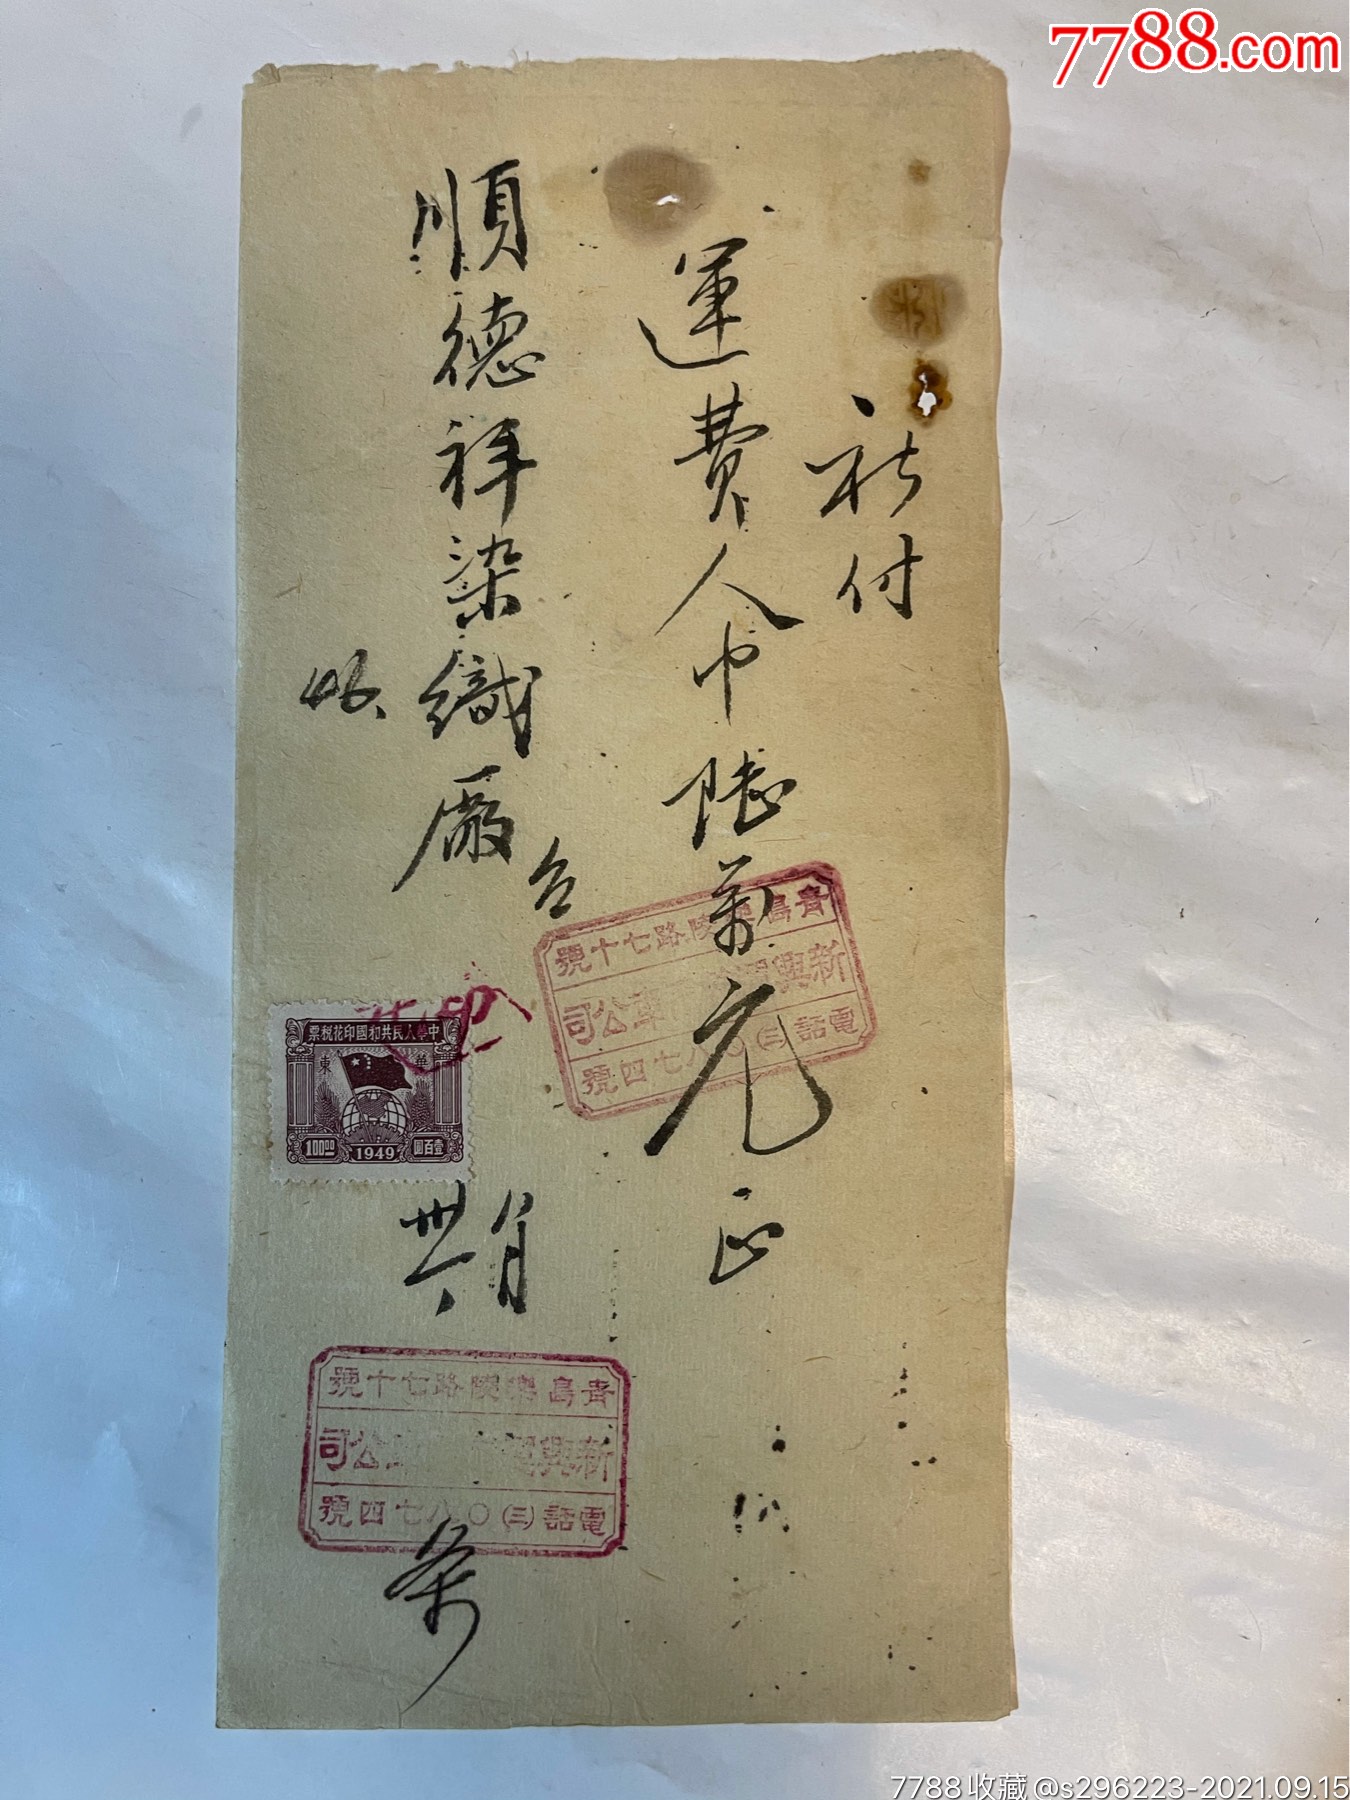 7788.com
祈付
運費人巾陸萬元正
順德祥染織廠
台
照
青島樂陵路七十號
新興
車公司
電話(三)〇八七四號
中華人民共和國印花稅票
華東
100.00
1949
壹百圓
月
青島樂陵路七十號
新興
公司
電話(三)〇八七四號
条
7788收藏@s296223-2021.09.15